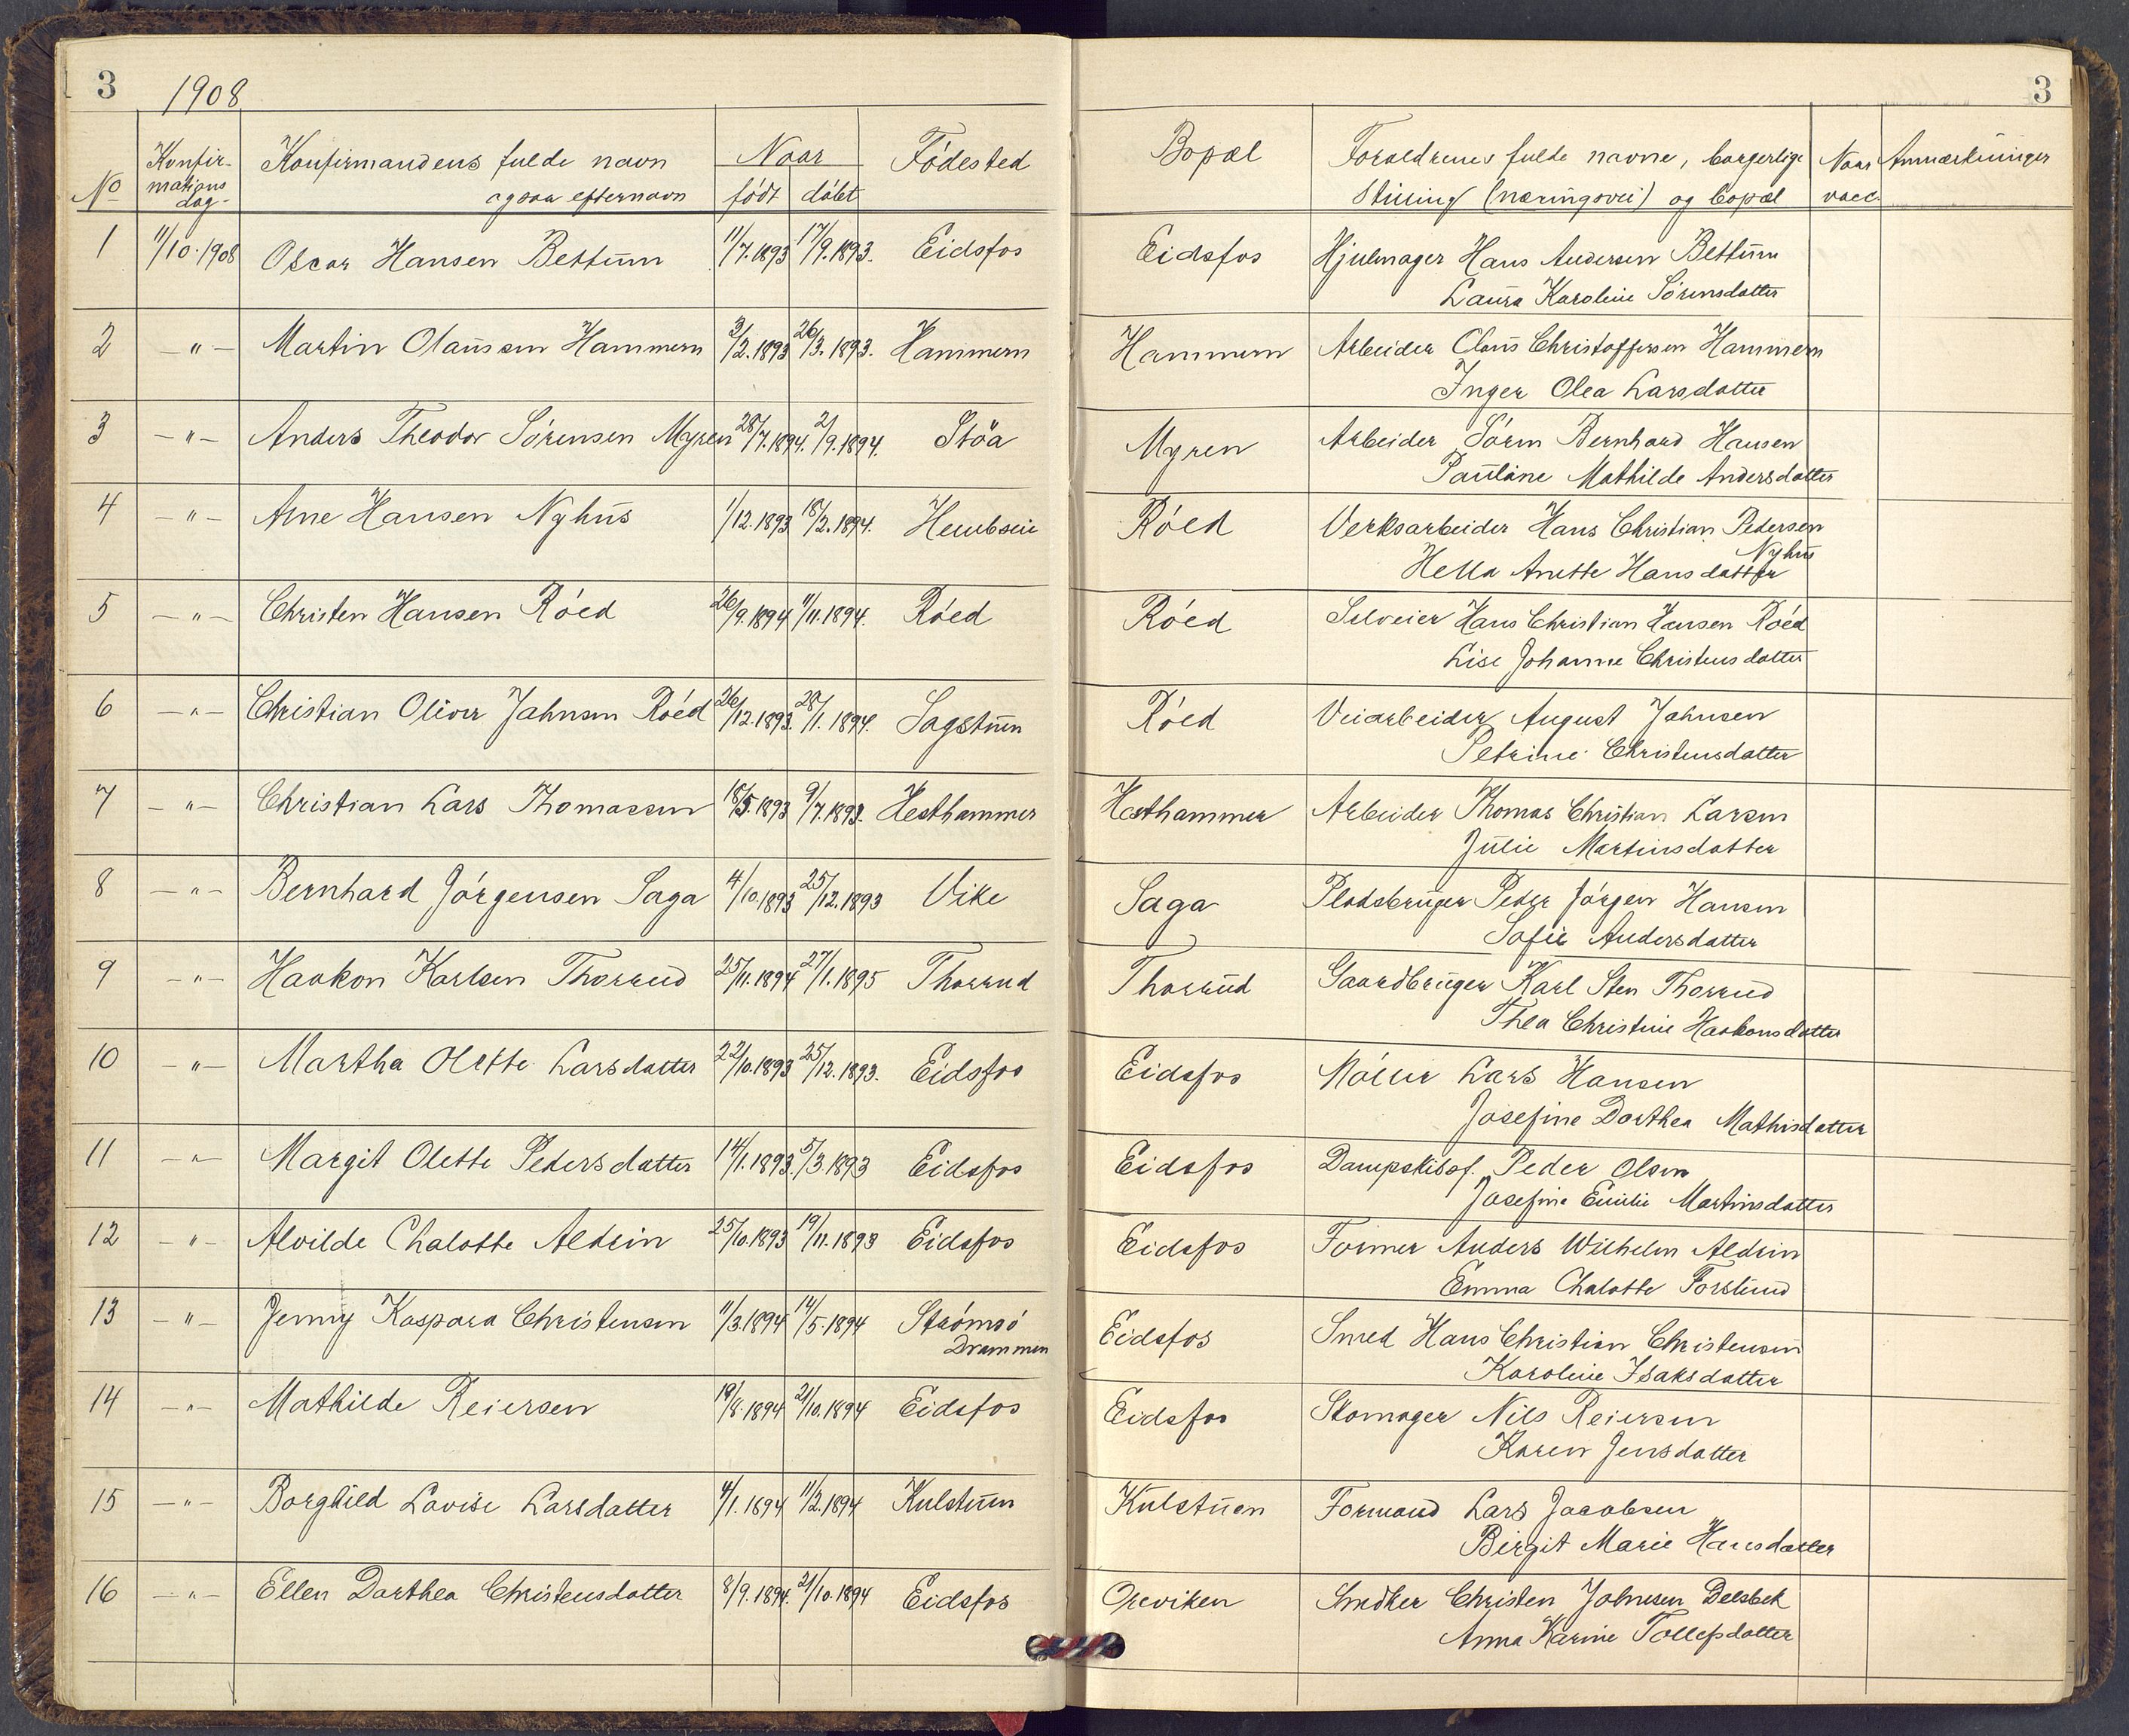 3 1908 3
No Konfirmationsdag Konfirmandens fulde navn ogsaa efternavn Naar født døbt Fødested Bopæl Forældrenes fulde navne, borgerlige Stilling (næringsvei) og bopæl Naar vacc. Anmærkninger
1 11/10.1908 Oscar Hansen Bettum 11/7.1893 17/9.1893. Eidsfos Eidsfos Hjulmager Hans Andersen Bettum
Laura Karoline Sørensdatter
2 -"- Martin Olaussen Hammern 3/2.1893 26/3.1893. Hammern Hammern Arbeider Claus Christoffersen Hammern
Inger Olea Larsdatter
3 -"- Anders Theodor Sørensen Myren 28/7.1894. 2/9.1894. Støa Myren Arbeider Søren Bernhard Hansen
Pauline Mathilde Andersdatter
4 -"- Arne Hansen Nyhus 1/12.1893 18/2.1894. Røed Verksarbeider Hans Christian Pedersen
Nyhus
Hella Anette Hansdatter
5 -"- Christen Hansen Røed 26/9.1894 11/11.1894. Røed Røed Selveier Hans Christian Hansen Røed
Lise Johanne Christensdatter
6 -"- Christian Oliver Jahnsen Røed 26/12.1893. 28/1.1894. Sagstuen Røed Veiarbeider August Jahnsen
Petrine Christensdatter
7 -"- Christian Lars Thomassen 18/5.1893 9/7.1893. Hesthammer Hesthammer Arbeider Thomas Christian Larsen
Julie Martinsdatter
8 -"- Bernhard Jørgensen Saga 4/10.1893 25/12.1893 Vike Saga Pladsbruger Peder Jørgen Hansen
Sofie Andersdatter
9 -"- Haakon Karlsen Thorrud 25/11.1894 27/1.1895 Thorrud Thorrud Gaardbruger Karl Sten Thorrud
Thea Christine Haakonsdatter
10 -"- Martha Olette Larsdatter 22/10.1893 25/12.1893. Eidsfos Eidsfos Møller Lars Hansen
Josefine Dorthea Mathisdatter
11 -"- Margit Olette Pedersdatter 14/1.1893. 5/3.1893 Eidsfos Eidsfos Dampskibsf. Peder Olsen
Josefine Emilie Martinsdatter
12 -"- Alvilde Chalotte Aldrin 25/10.1893 19/11.1893 Eidsfos Eidsfos Former Anders Wilhelm Aldrin
Emma Chalotte Forslund
13 -"- Jenny Kaspara Christensen 11/3.1894 14/5.1894 Strømsø Eidsfos Smed Hans Christian Christensen
Drammen Karoline Isaksdatter
14 -"- Mathilde Reiersen 19/8.1894 21/10.1894 Eidsfos Eidsfos Skomager Nils Reiersen
Karen Jensdatter
15 -"- Borghild Lovise Larsdatter 4/1.1894 11/2.1894 Kulstuen Kulstuen Formand Lars Jacobsen
Birgit Marie Hansdatter
16 -"- Ellen Dorthea Christensdatter 8/9.1894. 21/10.1894 Eidsfos Oreviken Snedker Christen Johnsen Delsbek
Anna Karine Tollefsdatter